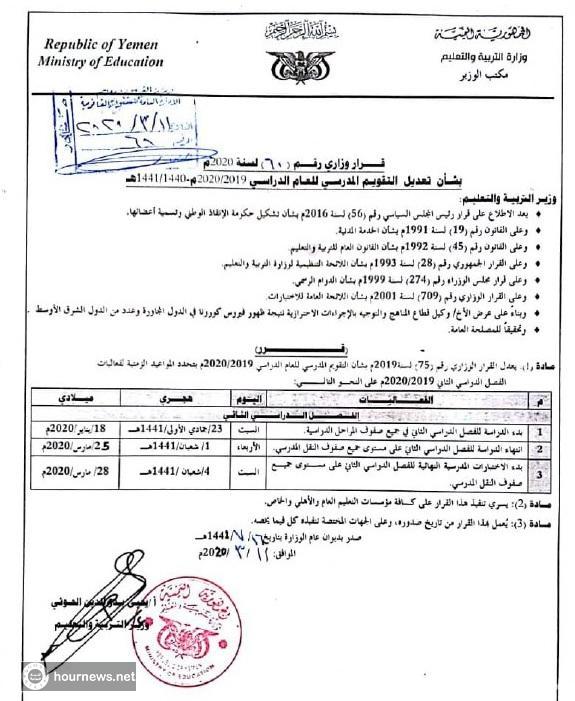 بسم الله الرحمن الرحيم
الجمهورية اليمنية
وزارة التربية والتعليم
مكتب الوزير
Republic of Yemen
Ministry of Education
٢٠٢٠/٣/١١
٦٠
قرار وزاري رقم (٦٠) لسنة 2020م
بشأن تعديل التقويم المدرسي للعام الدراسي 2020/2019م-1441/1440هـ
وزير التربية والتعليم:
♦ بعد الاطلاع على قرار رئيس المجلس السياسي رقم (56) لسنة 2016م بشأن تشكيل حكومة الإنقاذ الوطني وتسمية أعضائها.
♦ وعلى القانون رقم (19) لسنة 1991م بشأن الخدمة المدنية.
♦ وعلى القانون رقم (45) لسنة 1992م بشأن القانون العام للتربية والتعليم.
♦ وعلى القرار الجمهوري رقم (28) لسنة 1993م بشأن اللائحة التنظيمية لوزارة التربية والتعليم.
♦ وعلى قرار مجلس الوزراء رقم (274) لسنة 1999م بشأن الدوام الرسمي.
♦ وعلى القرار الوزاري رقم (709) لسنة 2001م بشأن اللائحة العامة للاختبارات.
♦ وبناءً على عرض الأخ/ وكيل قطاع المناهج والتوجيه بالإجراءات الاحترازية نتيجة ظهور فيرس كورونا في الدول المجاورة وعدد من الدول الشرق الأوسط .
♦ وتحقيقاً للمصلحة العامة.
(قرر)
مادة (1). يعدل القرار الوزاري رقم (75) لسنة2019م بشأن التقويم المدرسي للعام الدراسي 2020/2019م بتحدد المواعيد الزمنية لفعاليات
الفصل الدراسي الثاني 2020/2019م على النحو التالي:
م الفعاليات اليوم هجري ميلادي
الفصل الدراسي الثاني
1 بدء الدراسة للفصل الدراسي الثاني في جميع صفوف المراحل الدراسية. السبت 23/جمادي الأولى/1441هـ 18/يناير/2020م
2 انتهاء الدراسة للفصل الدراسي الثاني على مستوى جميع صفوف النقل المدرسي. الأربعاء 1/شعبان/1441هـ 25/مارس/2020م
3 بدء الاختبارات المدرسية النهائية للفصل الدراسي الثاني على مستوى جميع صفوف النقل المدرسي. السبت 4/شعبان/1441هـ 28/مارس/2020م
مادة (2): يسري تنفيذ هذا القرار على كافة مؤسسات التعليم العام والأهلي والخاص.
مادة (3): يُعمل بهذا القرار من تاريخ صدوره، وعلى الجهات المختصة تنفيذه كل فيما يخصه.
صدر بديوان عام الوزارة بتاريخ ١٦/٧/1441هـ
الموافق: ١٢/٣/2020م
أ/يحيى بدرالدين الحوثي
وزير التربية والتعليم
MINISTRY OF EDUCATION
hournews.net